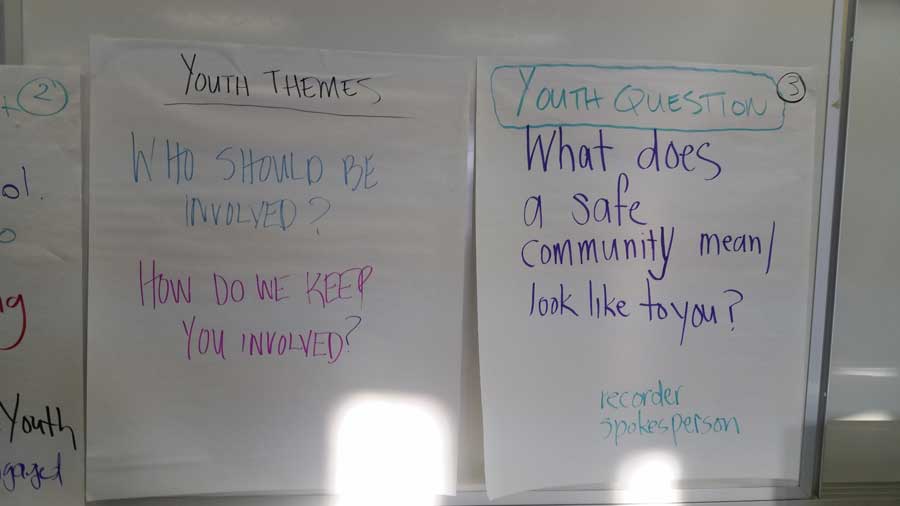 2
ol.
Youth
YOUTH THEMES
WHO SHOULD BE
INVOLVED?
HOW DO WE KEEP
YOU INVOLVED?
YOUTH QUESTION 3
What does
a safe
community mean/
look like to you?
recorder
spokesperson